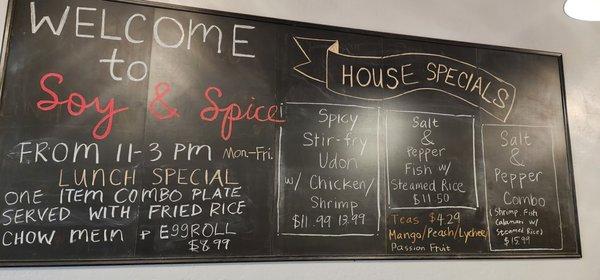 WELCOME
to
Soy & Spice
FROM 11-3 PM Mon-Fri.
LUNCH SPECIAL
ONE ITEM COMBO PLATE
SERVED WITH FRIED RICE
CHOW MEIN & EGGROLL
$8.99
HOUSE SPECIALS
Spicy
Stir-fry
Udon
w/ Chicken/
Shrimp
$11.99 13.99
Salt
&
Pepper
Fish w/
Steamed Rice
$11.50
Teas $4.29
Mango/Peach/Lychee/
Passion Fruit
Salt
&
Pepper
Combo
(Shrimp, Fish
Calamari w/
Steamed Rice)
$15.99